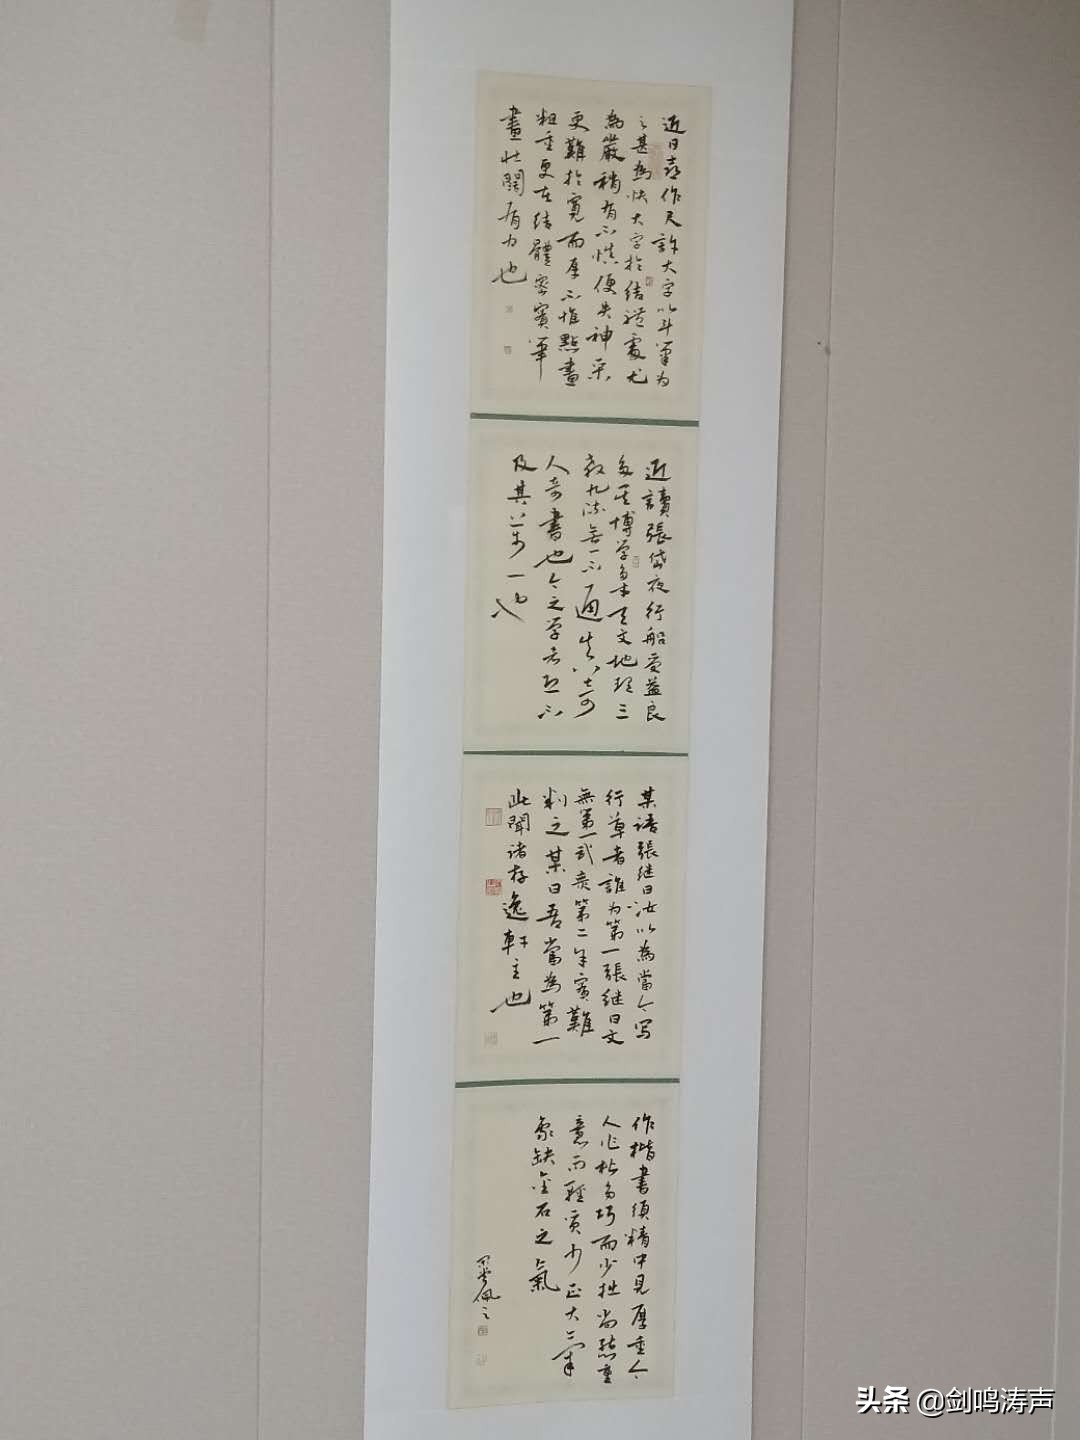 近日喜作尺許大字以斗筆为
之甚為快大字於结體處尤
為嚴稍有不慎便失神采
更難於寬而厚不惟點畫
粗重更在结體密實筆
畫壯闊有力也
近讀張岱夜行船受益良
多其博学多才天文地理三
教九流無一不通其人奇
人奇書也今之学者恐不
及其萬一也
某語張继曰汝以為當今写
行草者誰为第一張继曰文
無第一武羌第二実難
判之某曰吾當為第一
此聞诸存逸軒主也
作楷書须精中見厚重今
人作楷多巧而少拙尚慧重
意而輕質少正大之笔
象缺金石之氣
頭条 @剑鸣涛声